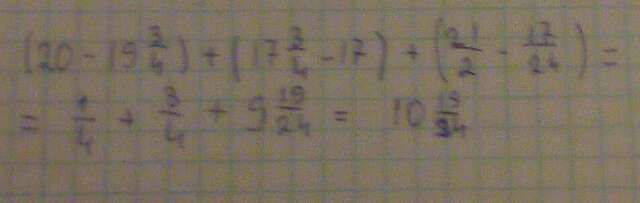 (20 - 19 3/4) + (17 3/4 - 17) + (21/2 - 17/24) =
= 1/4 + 3/4 + 9 19/24 = 10 19/24